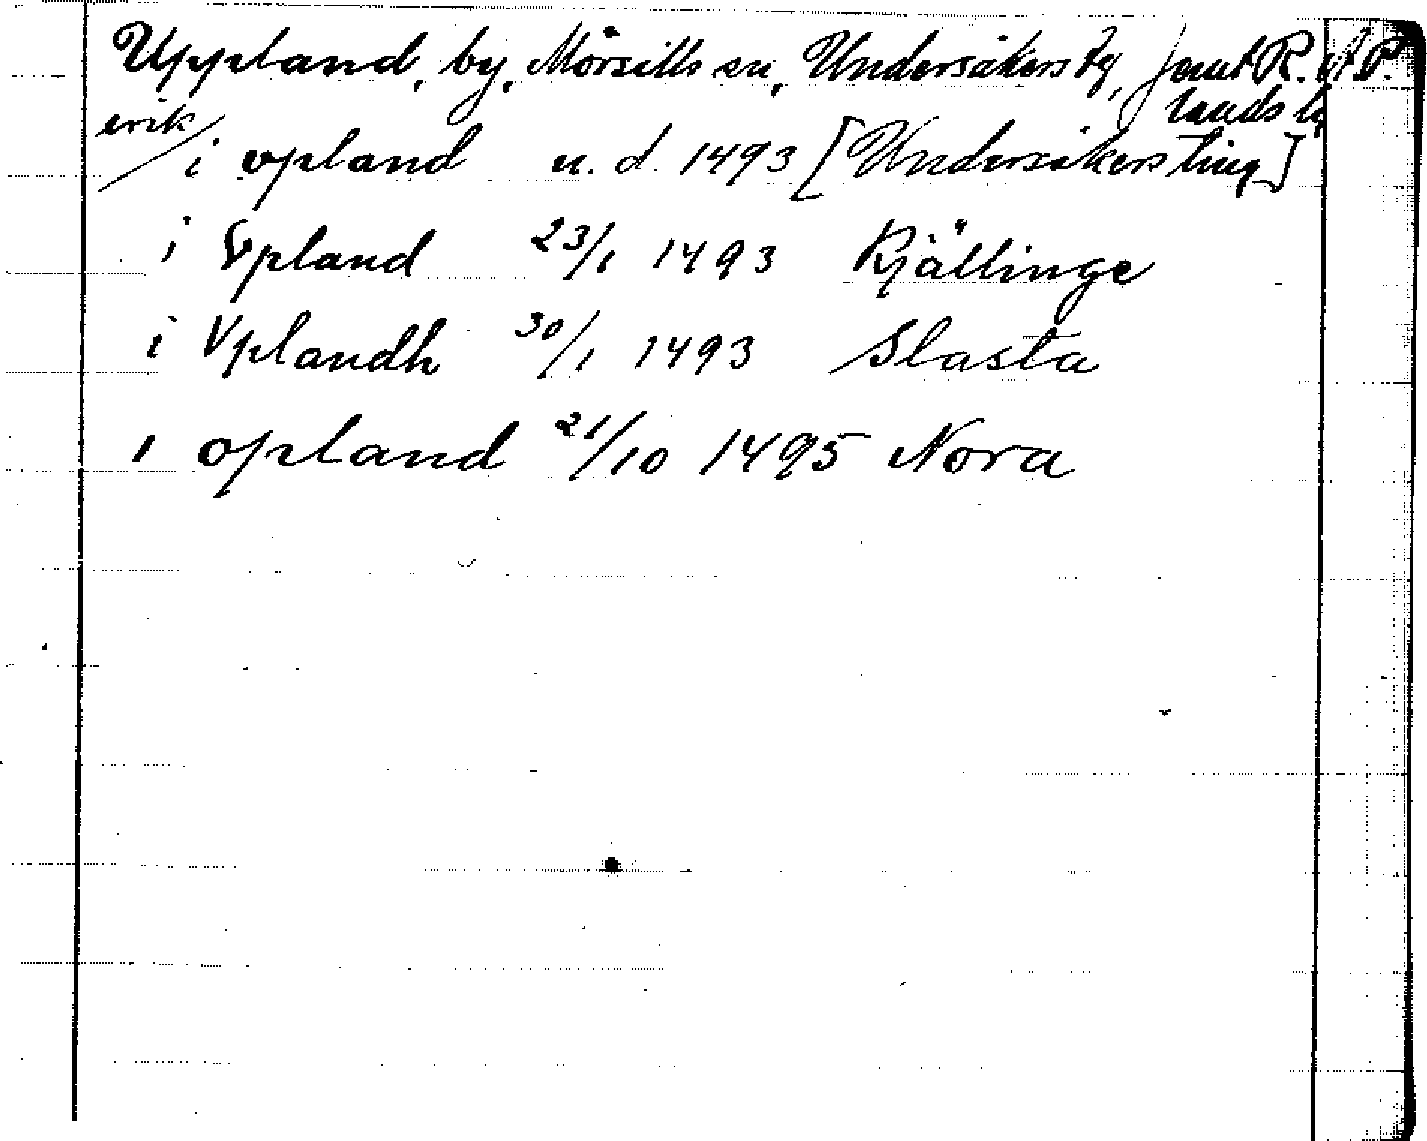 Uppland, by, Mörsills sn, Undersåkers tg, Jämt R.A.P.
lands l.
erik
i opland u. d. 1493 [Undersåkers ting]
i Vpland 23/1 1493 Kjällinge
i Vplandh 30/1 1493 Slasta
i opland 21/10 1495 Nora